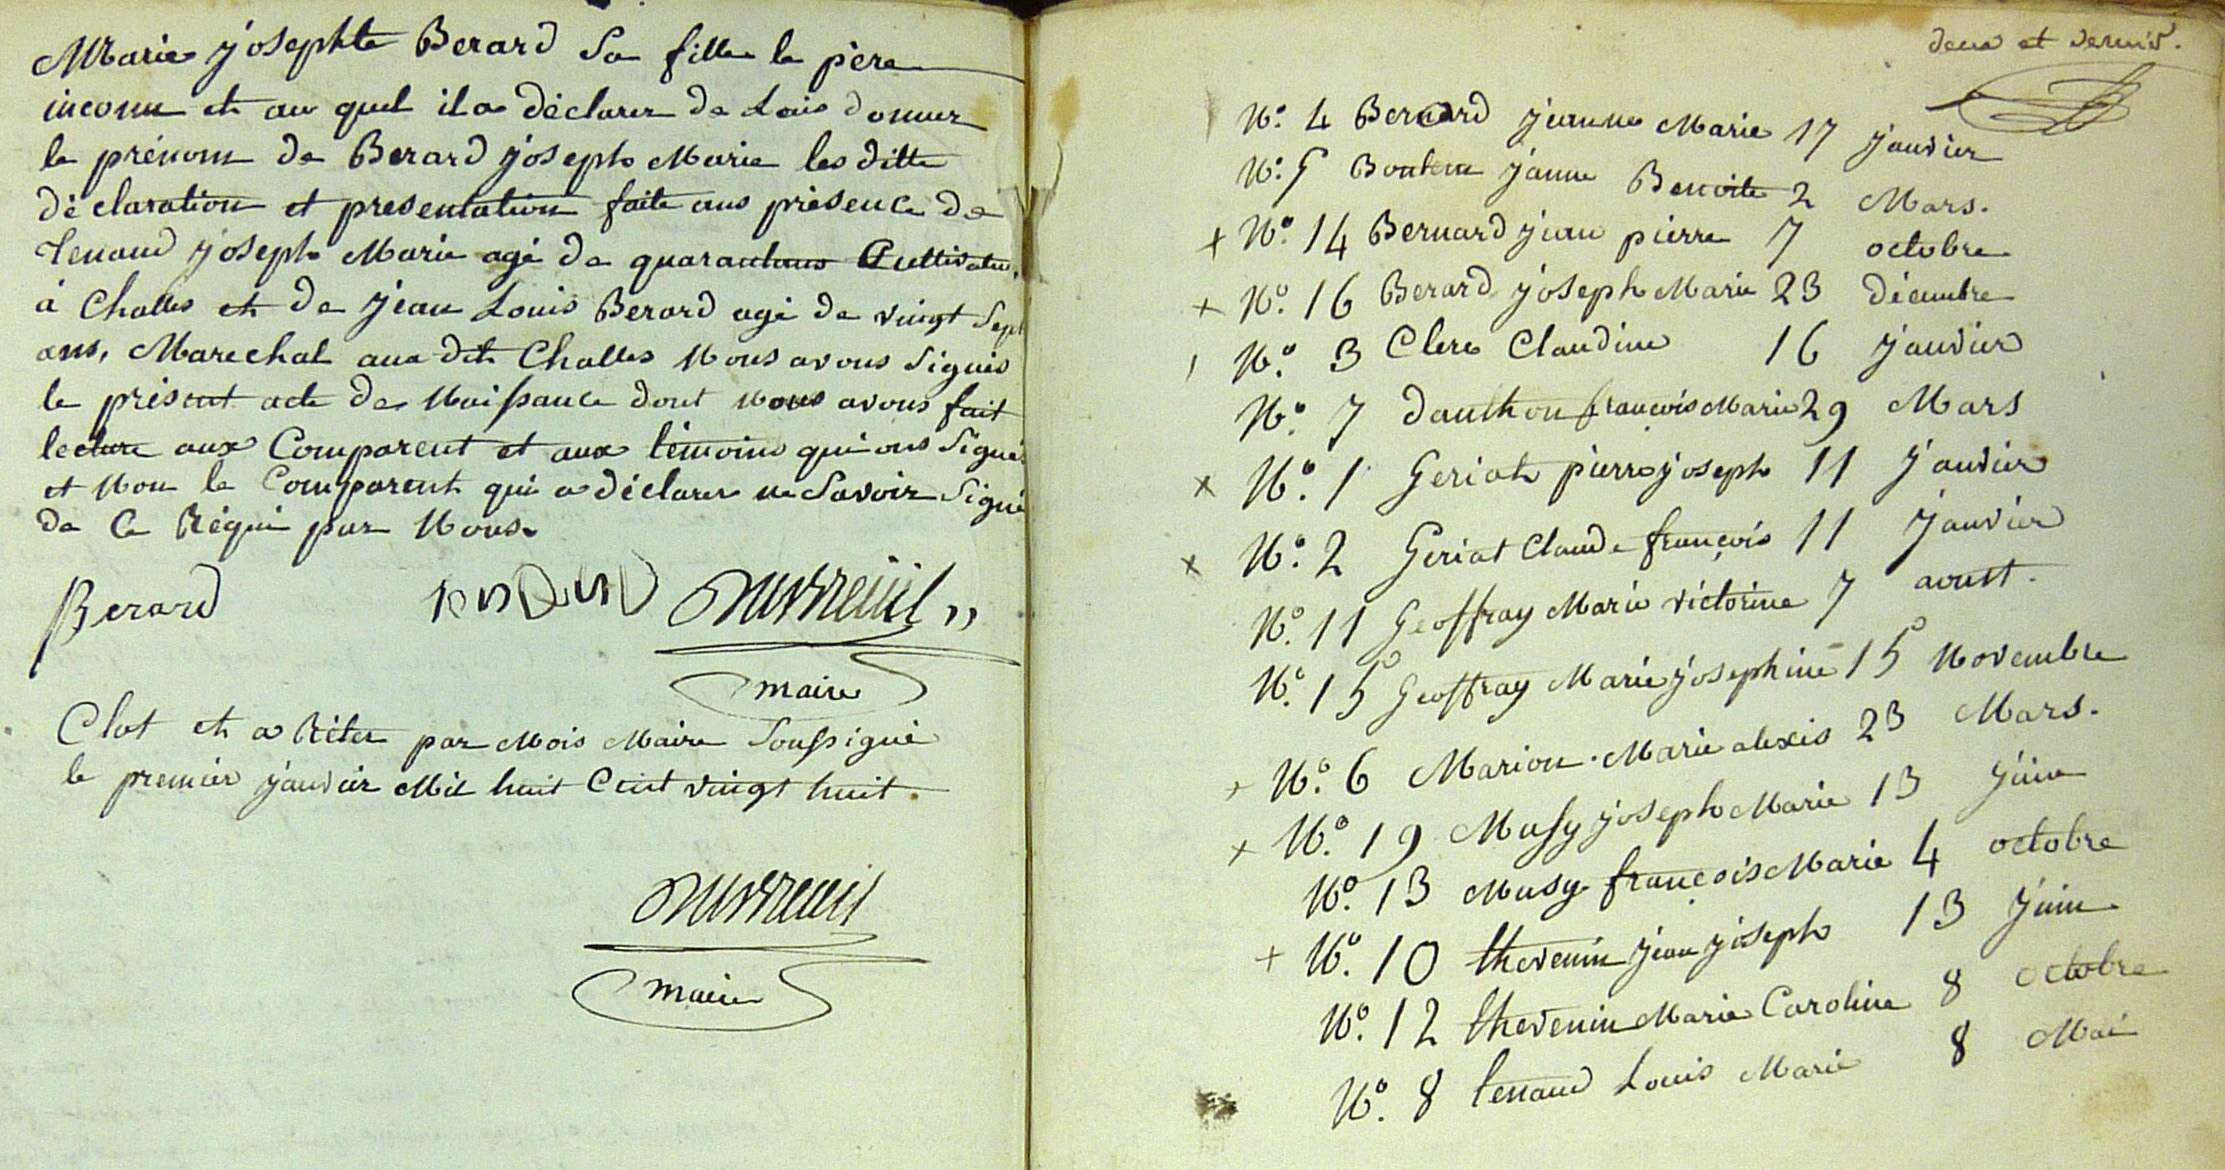 Marie josephte Berard Sa fille le père
inconu et au quel il a déclarer de Lais donner
le prénom de Berard joseph Marie les ditte
déclaration et presentation faite aus présence de
Tenand joseph Marie agé de quarantans Cultivateu.
à Challes et de jean Louis Berard agé de vingt Sept
ans, Marechal aux dit Challes Nous avons Signés
le présent acte de Naissance dont Nous avons fait
lecture aux Comparent et aux témoins qui ons Signés
et Non le Comparent qui a déclarer ne Savoir Signé
de Ce Réqui par Nous.
Berard
maire
Clot et a Réter par Mois Maire Soussigné
le premier janvier Mil huit Cent vingt huit.
maire
deux et dernier.
N.° 4 Berard jeanne Marie 17 janvier
N.° 5 janne Benoite 2 Mars.
+ N.° 14 Bernard jean pierre 7 octobre
+ N.° 16 Berard joseph Marie 23 décembre
N.° 3 Clerc Claudine 16 janvier
N.° 7 dauthon françois Marie 29 Mars
x N.° 1 Geriat pierre joseph 11 janvier
x N.° 2 Geriat Claude françois 11 janvier
N.° 11 Geoffray Marie victorine 7 aoust.
N.° 15 Geoffray Marie josephine 15 Novembre
+ N.° 6 Marion Marie alexis 23 Mars.
+ N.° 19 Musy joseph Marie 13 juin
N.° 13 Musy françois Marie 4 octobre
+ N.° 10 thevenin jean joseph 13 juin
N.° 12 thevenin Marie Caroline 8 octobre
N.° 8 tenand Louis Marie 8 Mai